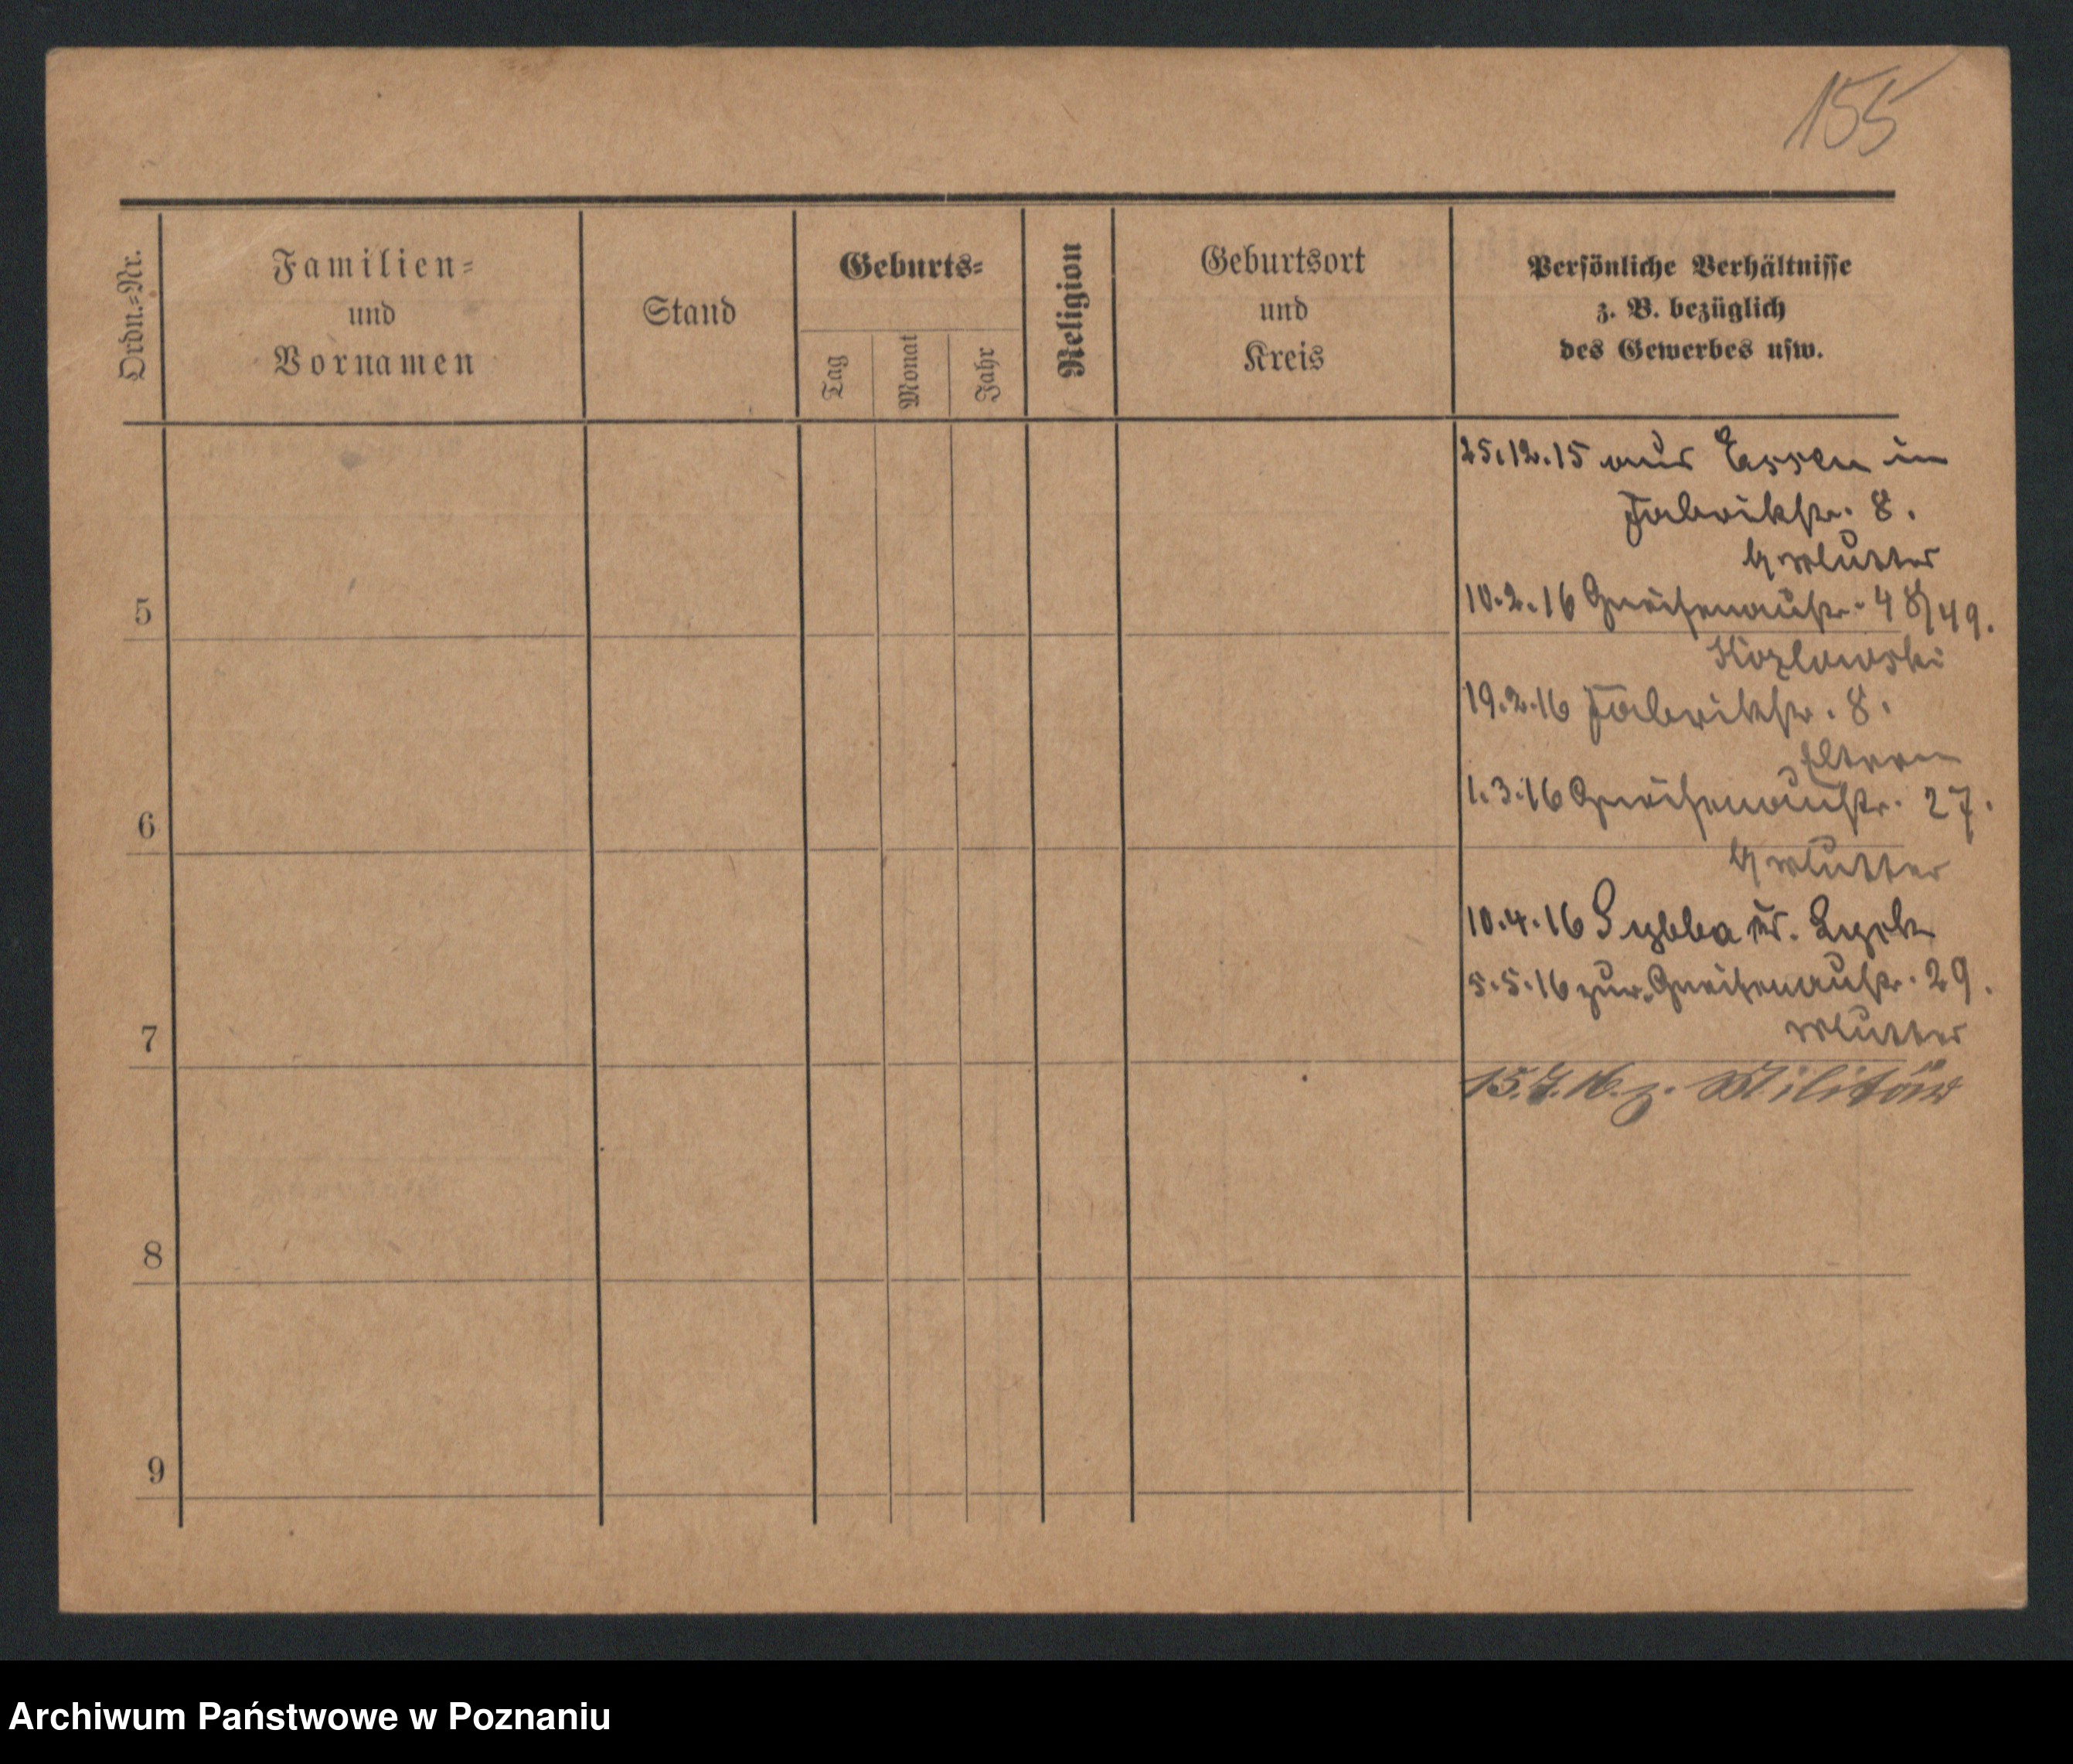 155
Ordn.-Nr.
Familien-
und
Vornamen
Stand
Geburts-
Tag
Monat
Jahr
Religion
Geburtsort
und
Kreis
Persönliche Verhältnisse
z. B. bezüglich
des Gewerbes usw.
25.12.15 aus Essen in
Fabrikstr. 8.
Mutter
5
10.2.16 Gneisenaustr. 48/49.
Kozlowski
19.2.16 Fabrikstr. 8.
Eltern
6
1.3.16 Gneisenaustr. 27.
Mutter
10.4.16 Sybba Kr. Lyck
5.5.16 zur. Gneisenaustr. 29.
7
Mutter
15.7.16. z. Militär
8
9
Archiwum Państwowe w Poznaniu